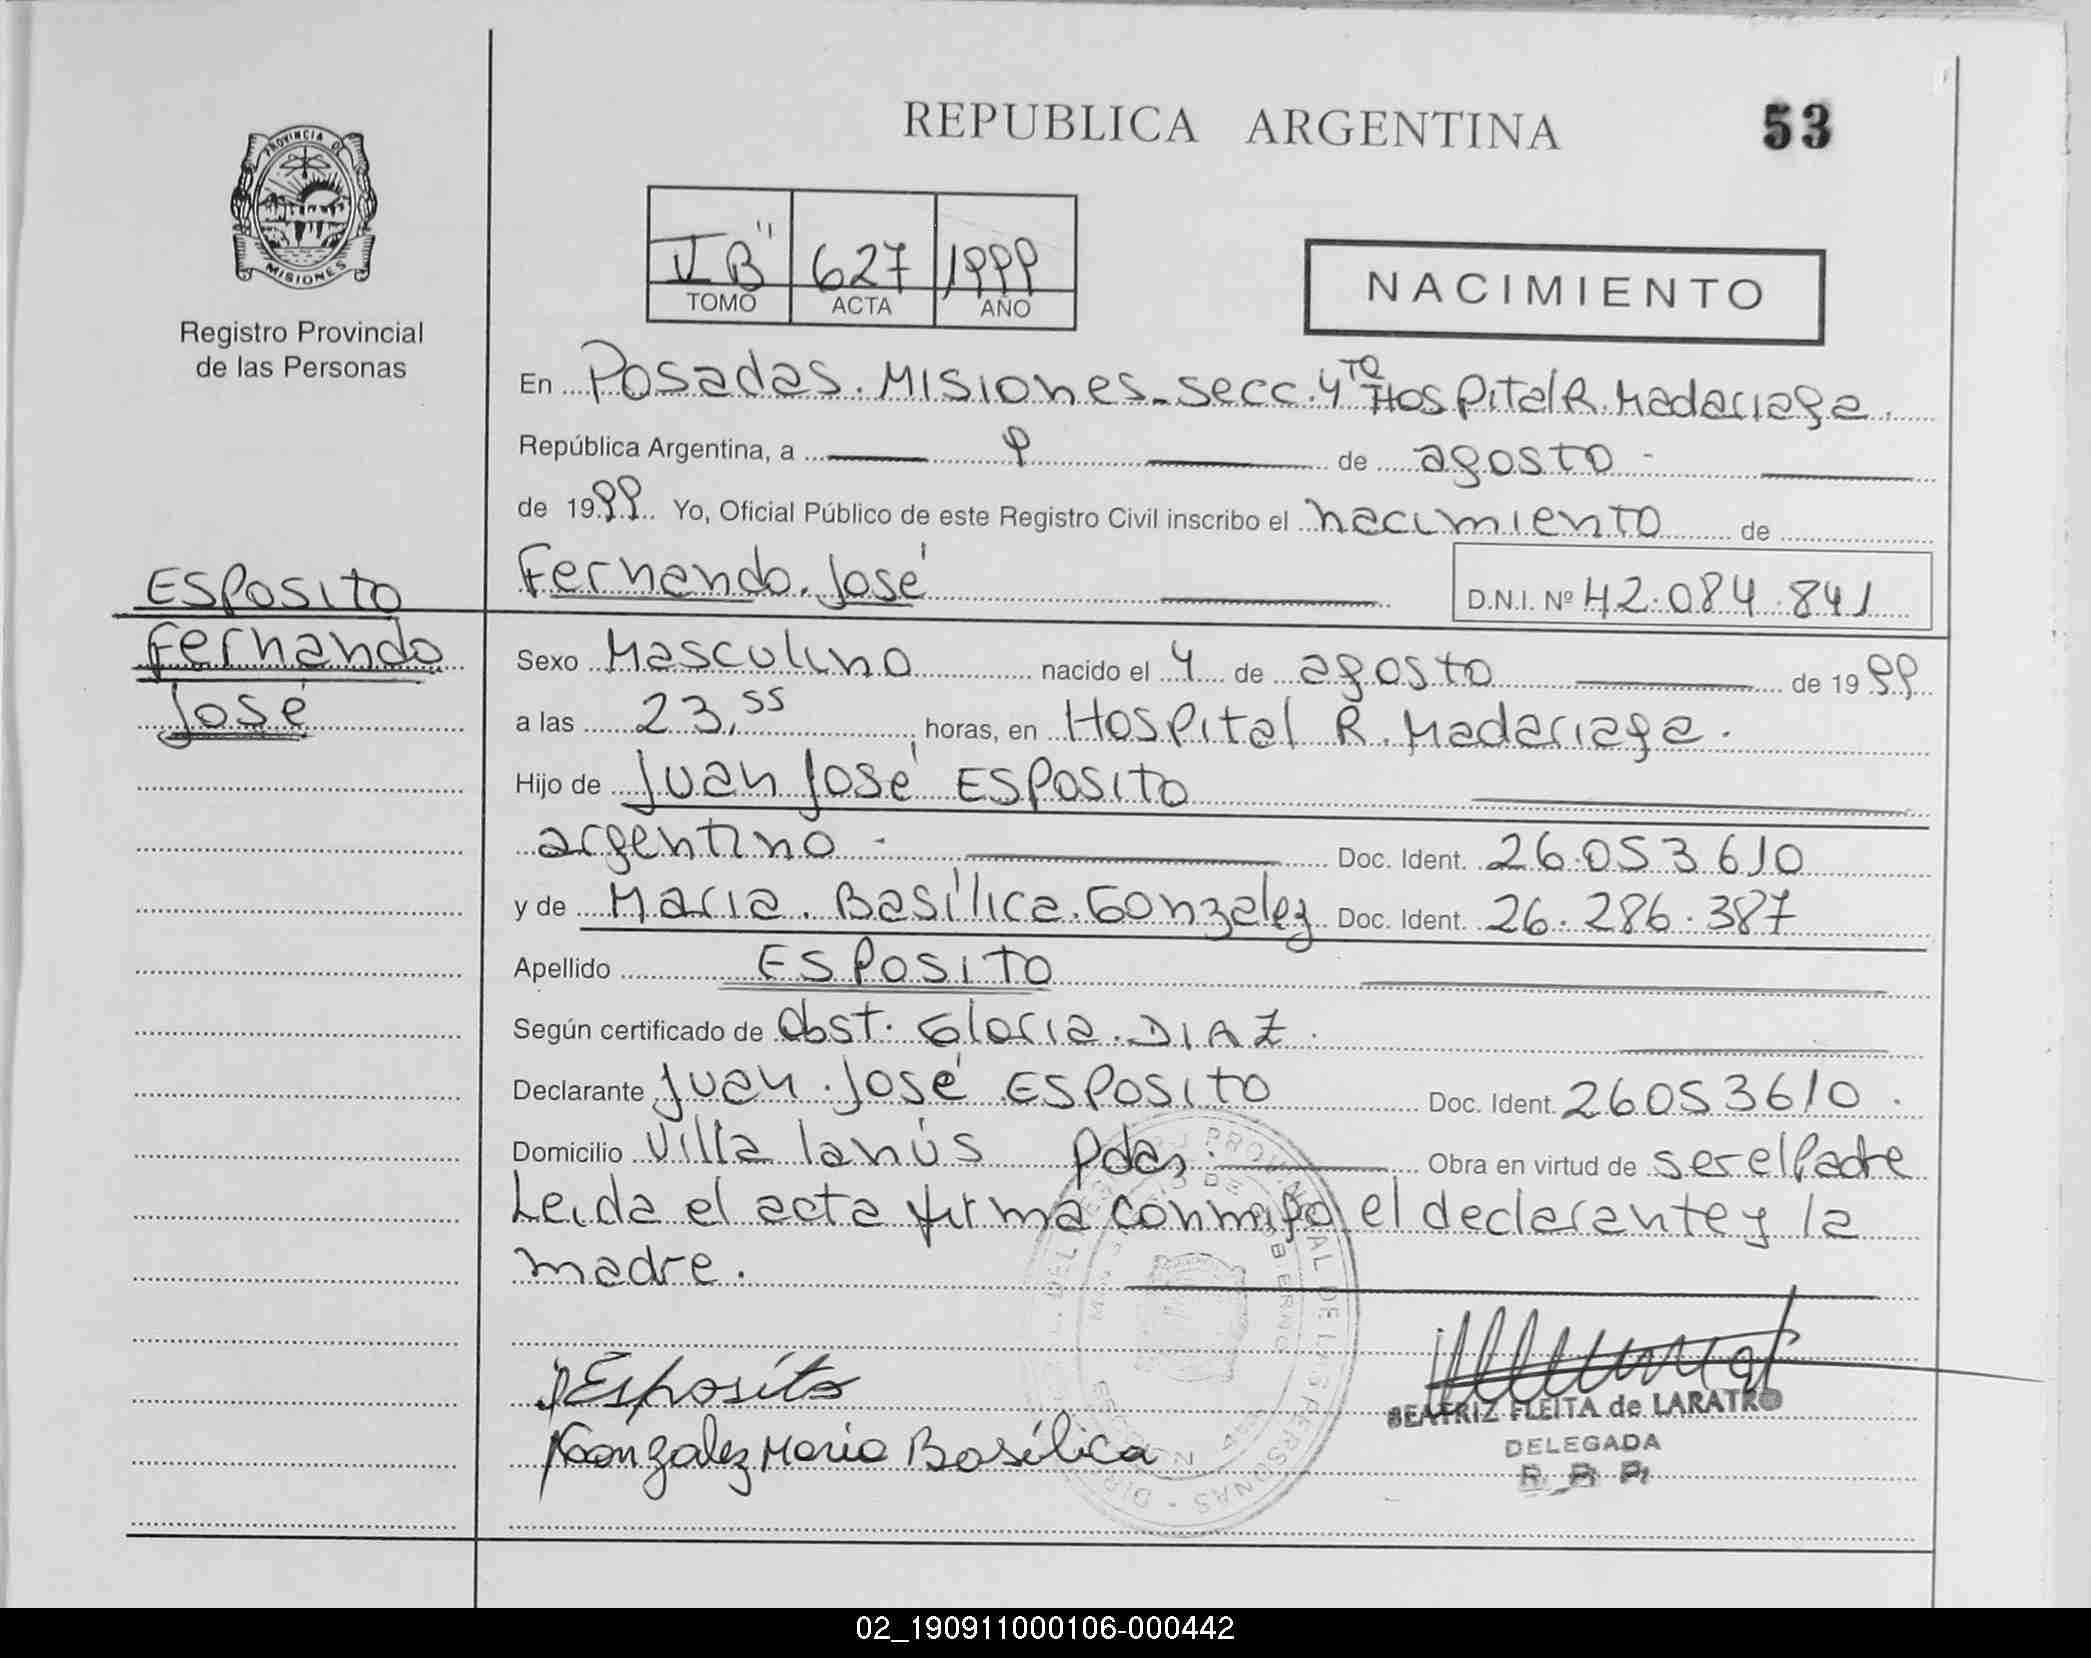 REPUBLICA ARGENTINA
53
PROVINCIA DE
MISIONES
Registro Provincial
de las Personas
V B" 627 1999
TOMO ACTA AÑO
NACIMIENTO
En Posadas. Misiones_ secc. 4TO Hospital R. Madariaga.
República Argentina, a 9 de agosto -
de 1999 Yo, Oficial Público de este Registro Civil inscribo el nacimiento de
Fernando. José
D.N.I. Nº 42.084.841
ESPOSITO
Fernando
José
Sexo Masculino nacido el 4 de agosto de 1999
a las 23,55 horas, en Hospital R. Madariaga.
Hijo de Juan José ESPOSITO
argentino - Doc. Ident. 26.053610
y de Maria. Basílica. Gonzalez Doc. Ident. 26.286.387
Apellido ESPOSITO
Según certificado de Obst. Gloria. DIAZ.
Declarante Juan. José ESPOSITO Doc. Ident. 26053610.
Domicilio Villa lanús Pdas. Obra en virtud de ser el Padre
Leida el acta firma conmigo el declarante y la
madre.
Esposito
Gonzalez Maria Basílica
BEATRIZ FLEITA de LARATRO
DELEGADA
R. P. P.
02_190911000106-000442